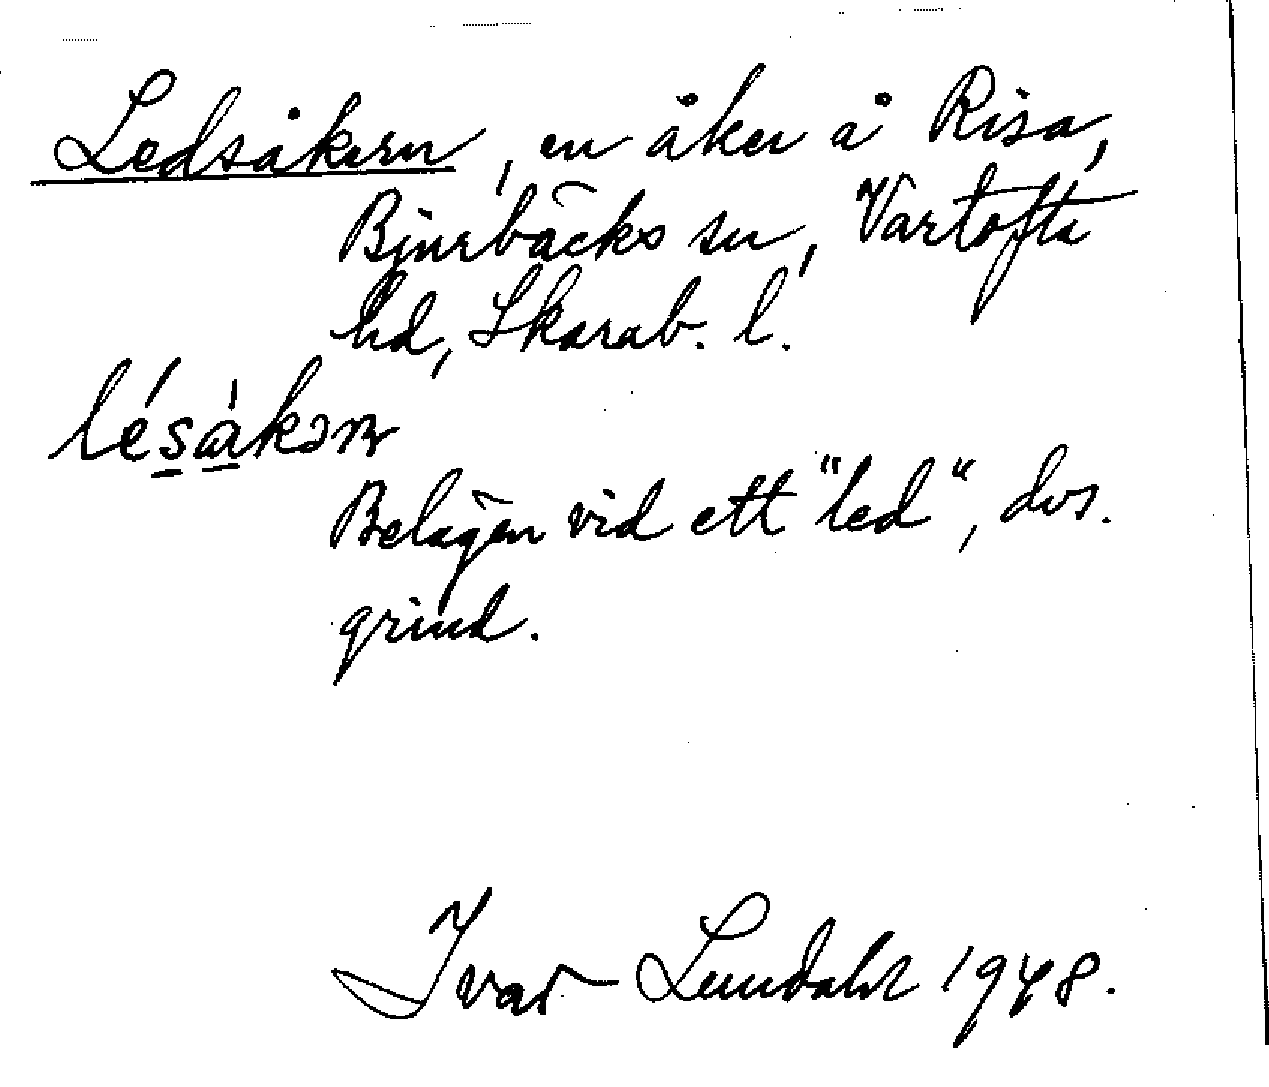 Ledsåkern, en åker å Risa,
Bjurbäcks sn, Vartofta
hd, Skarab. l.
lésàkəɳ
Belägen vid ett "led", dvs.
grind.
Ivar Lundahl 1948.